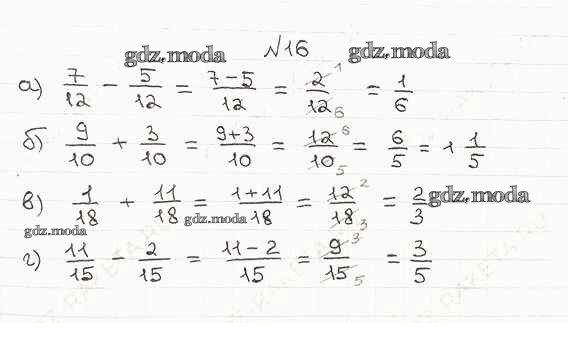 gdz.moda №16 gdz.moda
а) 7/12 − 5/12 = 7−5/12 = 2/12 1 6 = 1/6
б) 9/10 + 3/10 = 9+3/10 = 12/10 6 5 = 6/5 = 1 1/5
в) 1/18 + 11/18 = 1+11/18 = 12/18 2 3 = 2/3 gdz.moda
gdz.moda
gdz.moda
г) 11/15 − 2/15 = 11−2/15 = 9/15 3 5 = 3/5